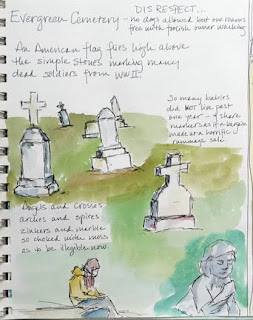 DISRESPECT...
Evergreen Cemetery - no dogs allowed but one roams
free with foolish owner walking
An American flag flies high above
the simple stones marking many
dead soldiers from WWII.
So many babies
did not live past
one year - share
markers as if a bargain
made at a horrific
rummage sale.
Angels and Crosses
arches and spires
zinkers and marble
so choked with moss
as to be illegible now.